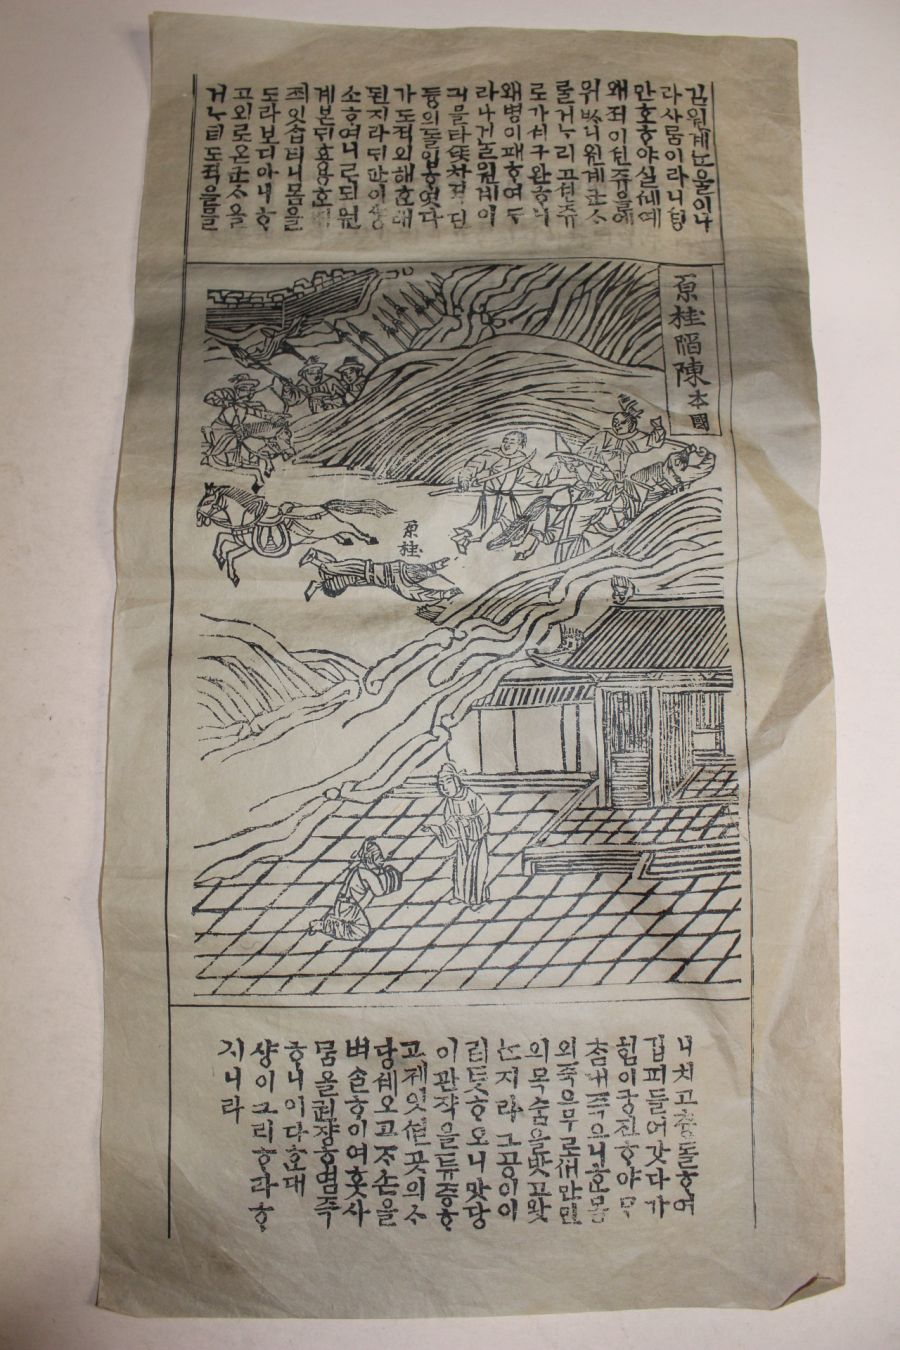 김원계ᄂᆞᆫ울이나
라사ᄅᆞᆷ이라니텽
만호ᄒᆞ야실제예
왜적이션쥬을에
위ᄡᆞ니원계군ᄉᆞ
ᄅᆞᆯ거ᄂᆞ리고션쥬
로가셔구완ᄒᆞ니
왜병이패ᄒᆞ여ᄃᆞ
라나거ᄂᆞᆯ원계이
긔믈타ᄶᅩ차
등의들입ᄒᆞ엿다
가도적의해ᄒᆞ배
된지라뒤만이
소ᄒᆞ여니ᄅᆞ되원
계본ᄃᆡ효용ᄒᆞ
즤잇ᄉᆞᆸ더니몸을
도라보디아니ᄒᆞ
고외로온군ᄉᆞᄅᆞᆯ
거ᄂᆞ려도적을믈
原桂陷陳 本國
原桂
니치고츙돌ᄒᆞ여
깁피들어갓다가
힘이궁진ᄒᆞ야ᄆᆞ
ᄎᆞᆷ내죽으니ᄒᆞᆫ몸
의죽음으로ᄡᅥ만민
의목숨을밧고왓
ᄂᆞᆫ지라그공이이
러ᄐᆞᆺᄒᆞ오니맛당
이관작을튜증ᄒᆞ
고제잇션곳의ᄉᆞ
당셰오고ᄌᆞ손을
벼슬ᄒᆞ이여훗사
ᄅᆞᆷ을권쟝ᄒᆞ염즉
ᄒᆞ니이다ᄒᆞᆫ대
샹이그리ᄒᆞ라ᄒᆞ
시니라